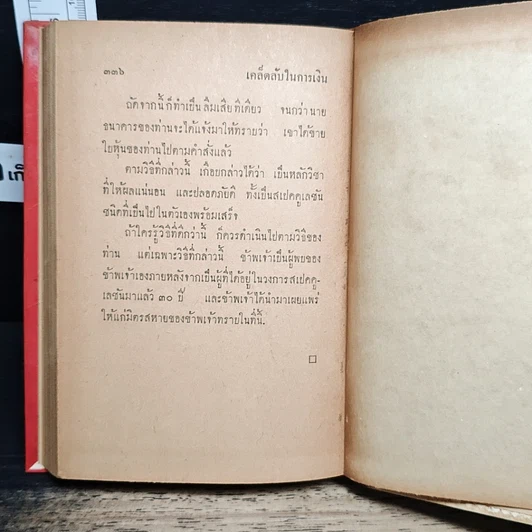 ๓๓๖ เคล็ดลับในการเงิน
ถัดจากนี้ก็ทำเป็นลืมเสียทีเดียว จนกว่านาย
ธนาคารของท่านจะได้แจ้งมาให้ทราบว่า เขาได้ขาย
ใบหุ้นของท่านไปตามคำสั่งแล้ว
ตามวิธีที่กล่าวนี้ เกือบกล่าวได้ว่า เป็นหลักวิชา
ที่ให้ผลแน่นอน และปลอดภัยดี ทั้งเป็นสเปคคูเลชัน
ชนิดที่เป็นไปในตัวเองพร้อมเสร็จ
ถ้าใครรู้วิธีที่ดีกว่านี้ ก็ควรดำเนินไปตามวิธีของ
ท่าน แต่เฉพาะวิธีที่กล่าวนี้ ข้าพเจ้าเป็นผู้พบของ
ข้าพเจ้าเองภายหลังจากเป็นผู้ที่ได้อยู่ในวงการสเปคคู-
เลชันมาแล้ว ๓๐ ปี และข้าพเจ้าได้นำมาเผยแพร่
ให้แก่มิตรสหายของข้าพเจ้าทราบในที่นี้.